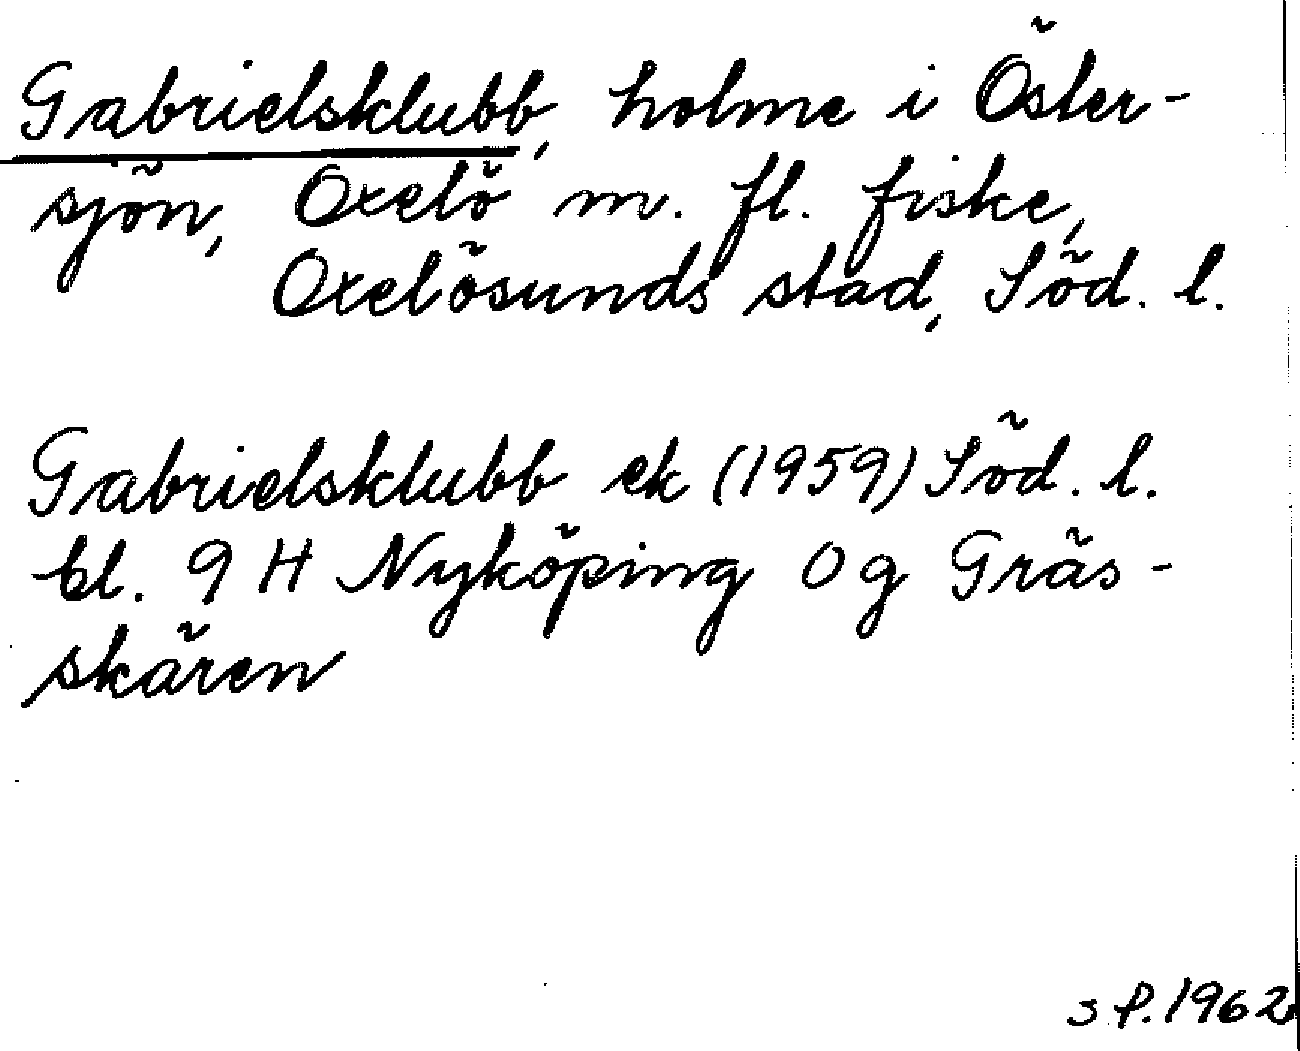 Gabrielsklubb, holme i Öster-
sjön, Oxelö m. fl. fiske,
Oxelösunds stad, Söd. l.
Gabrielsklubb ek (1959) Söd. l.
bl. 9 H Nyköping 0 g Gräs-
skären
s P. 1962